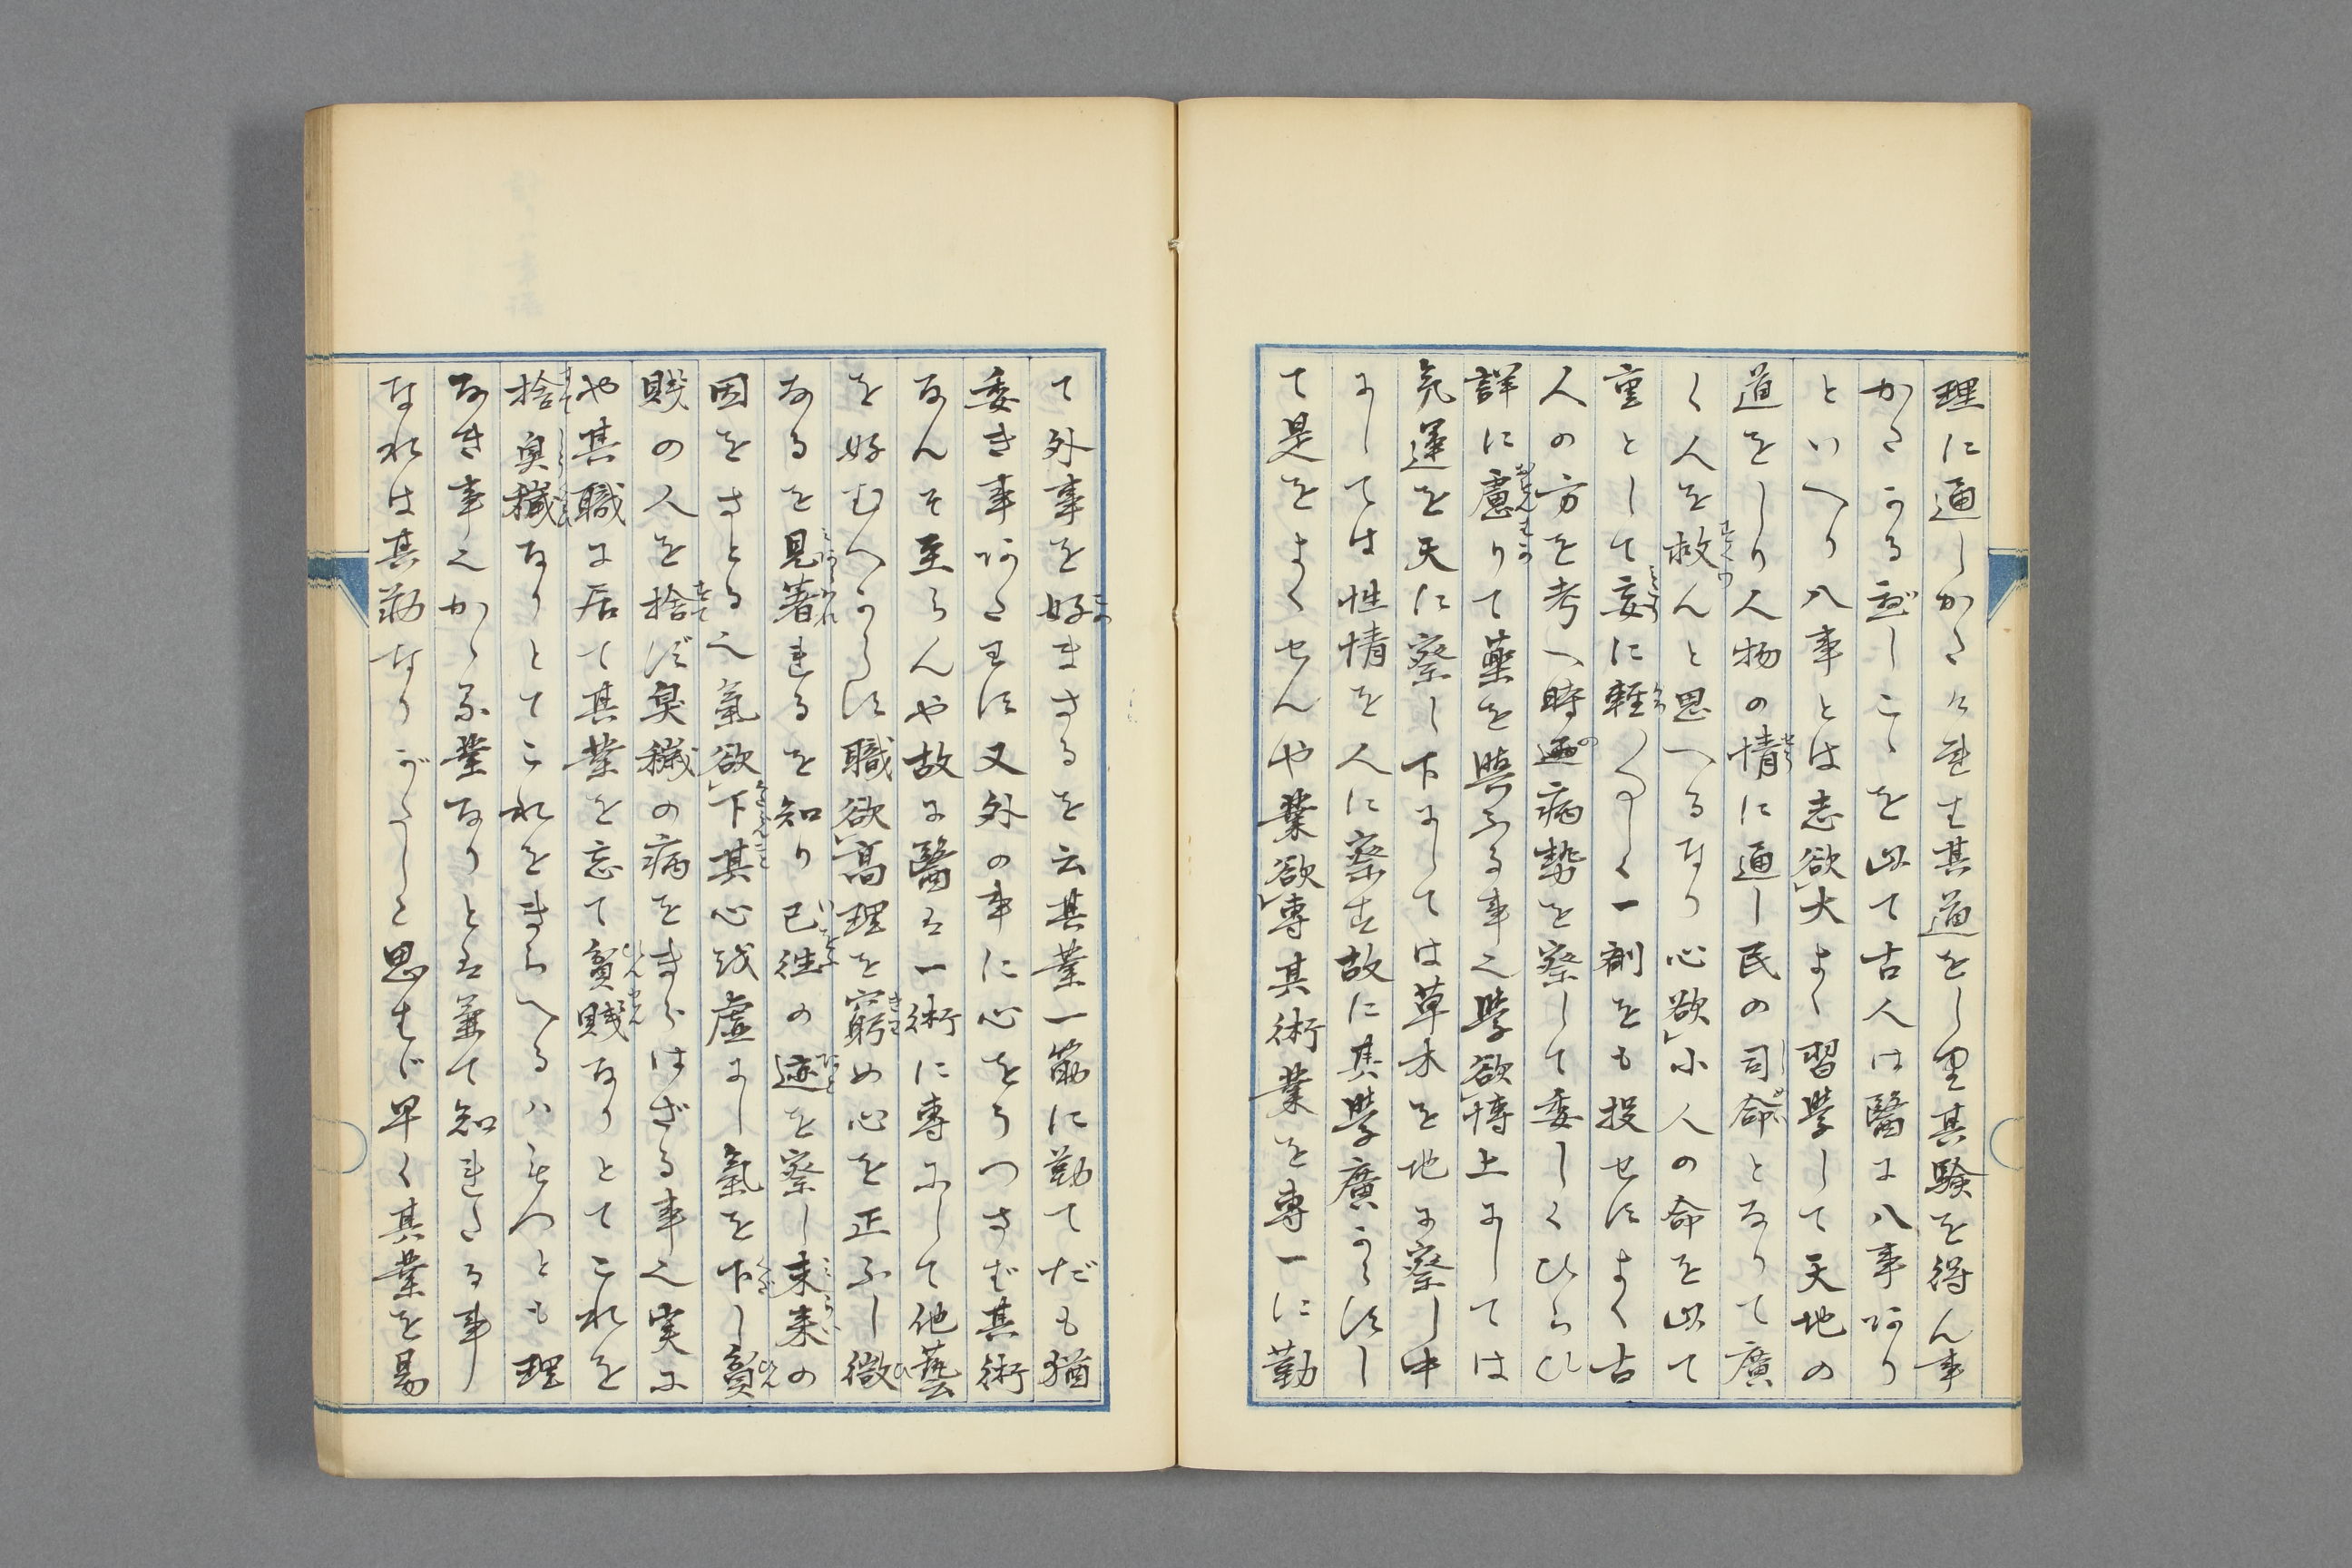 理に通しかたけれは其道をしり其驗を得ん事
かたかるべしこゝを以て古人は醫に八事あり
といへり八事とは志欲大よく習學して天地の
道をしり人物の情に通し民の司命となりて廣
く人を救んと思へるなり心欲小人の命を以て
重として妄に輕〱しく一劑をも投せすよく古
人の方を考へ時運病勢を察して委しくひらひ
詳に慮りて藥を與ふる事也學欲博上にしては
気運を天に察し下にしては草木を地に察し中
にしては性情を人に察す故に其學廣からすし
て是をよくせんや業欲專其術業を專一に勤
て外事を好まさるを云其業一筋に勤てだも猶
委き事あたはす又外の事に心をうつさば其術
なんそ至らんや故に醫は一術に專にして他藝
を好むへからす職欲高理を窮め心を正ふし微
なるを見著れるを知り已往の迹を察し未来の
因をさとる也氣欲下其心越虚にし氣を下し貧
賎の人を捨ず臭穢の病をきらはざる事也実に
や其職に居て其業を忘て貧賎なりとてこれを
捨臭穢なりとてこれをきらへるハ
なき事也かゝる業なりと云兼て知れたる事
なれは其勤なりがたしと思はゞ早く其業を易